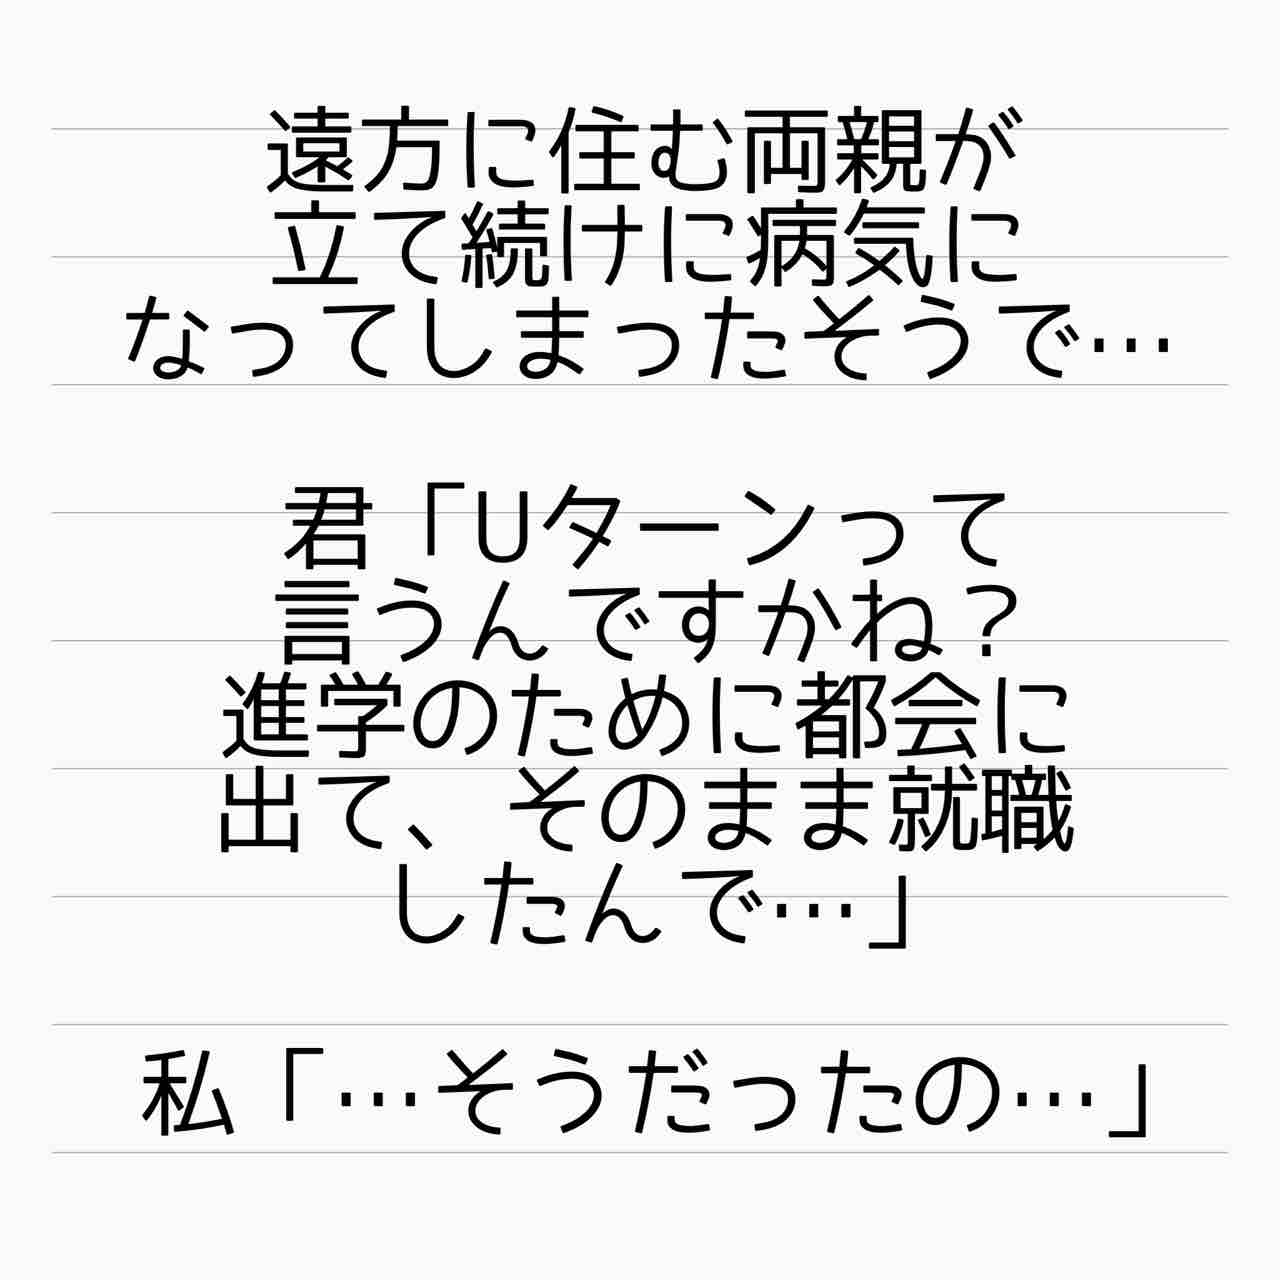 遠方に住む両親が
立て続けに病気に
なってしまったそうで…
君「Uターンって
言うんですかね？
進学のために都会に
出て、そのまま就職
したんで…」
私「…そうだったの…」